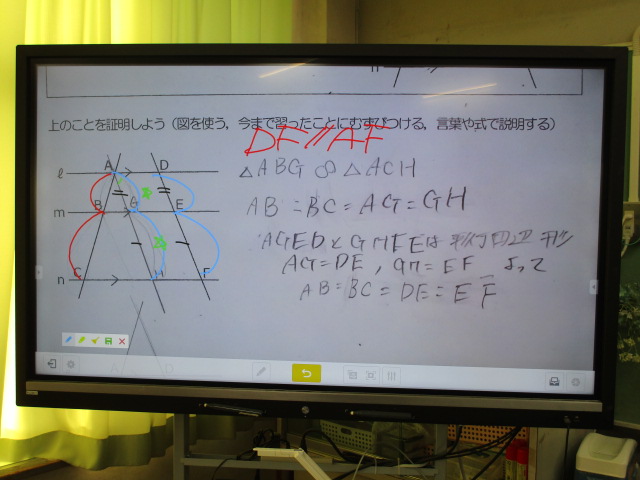 上のことを証明しよう（図を使う，今まで習ったことにむすびつける，言葉や式で説明する）
DF // AF
△ABG ∞ △ACH
AB = BC = AG = GH
AGED と GHFE は 平行四辺形
AG = DE , GH = EF よって
AB = BC = DE = EF
ℓ A D
m B G E
n C H F